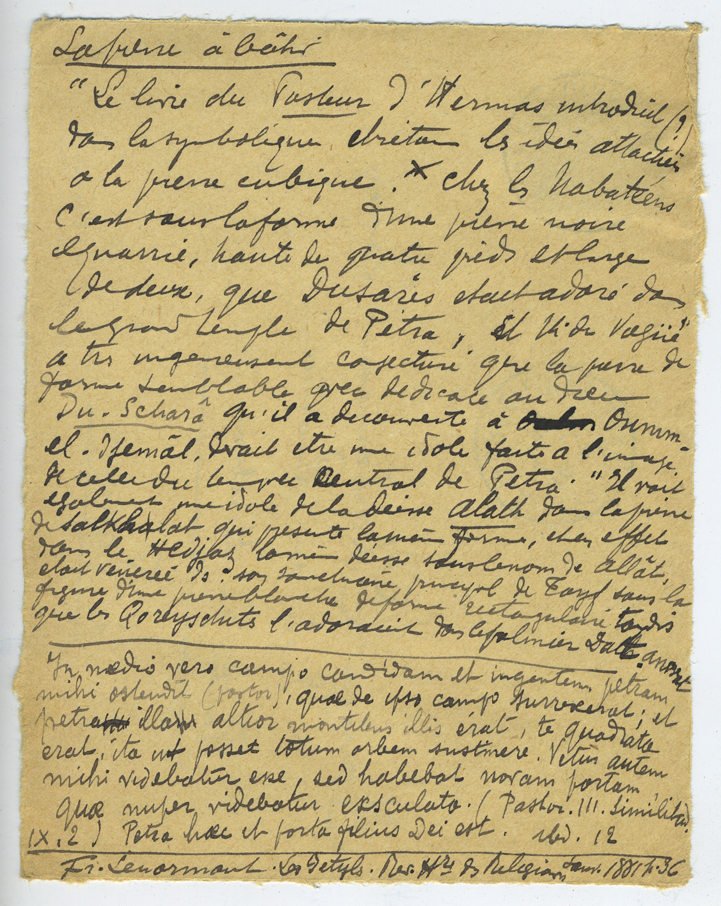 La pierre à bâtir
"Le livre du Pasteur d'Hermas introduit (?)
dans la symbolique chrétien les idées attachées
a la pierre cubique. x chez les Nabatéens
c'est sous la forme d'une pierre noire
equarrie, haute de quatre pieds et large
de deux, que Dusarès etait adoré dans
le grand temple de Pétra, et M. de Vogüé"
a tres ingenieusement conjecturé que la pierre de
forme semblable avec dedicace au dieu
Du-Scharâ qu'il a decouverte à Oumm-
el-Djemâl, devait etre une idole faite a l'image
de celle du temple central de Petra. "Il voit
egalement une idole de la déesse Alath dans la pierre
de Salkhat qui presente la même forme, et en effet
dans le Hedjaz la même déesse sous le nom de Allât,
etait vénérée ds. son sanctuaire principal de Tayf sous la
figure d'une pierre blanche de forme rectangulaire tandis
que les Qoreyschites l'adoraient dans le palmier Dhât anwat
In medio vero campo candidam et ingentem petram
mihi ostendit (pastor), quæ de ipso campo surrexerat; et
petra illa altior montibus illis erat, te quadrata
erat, ita ut posset totum orbem sustinere. Vetus autem
mihi videbatur esse, sed habebat novam portam
quæ nuper videbatur exsculata. (Pastor. III. Similitud.
IX, 2) Petra hæc et porta filius Dei est. ibid. 12
Fr. Lenormant. Les Betyls. Rev. Hre des Religions Janv. 1881 p. 36